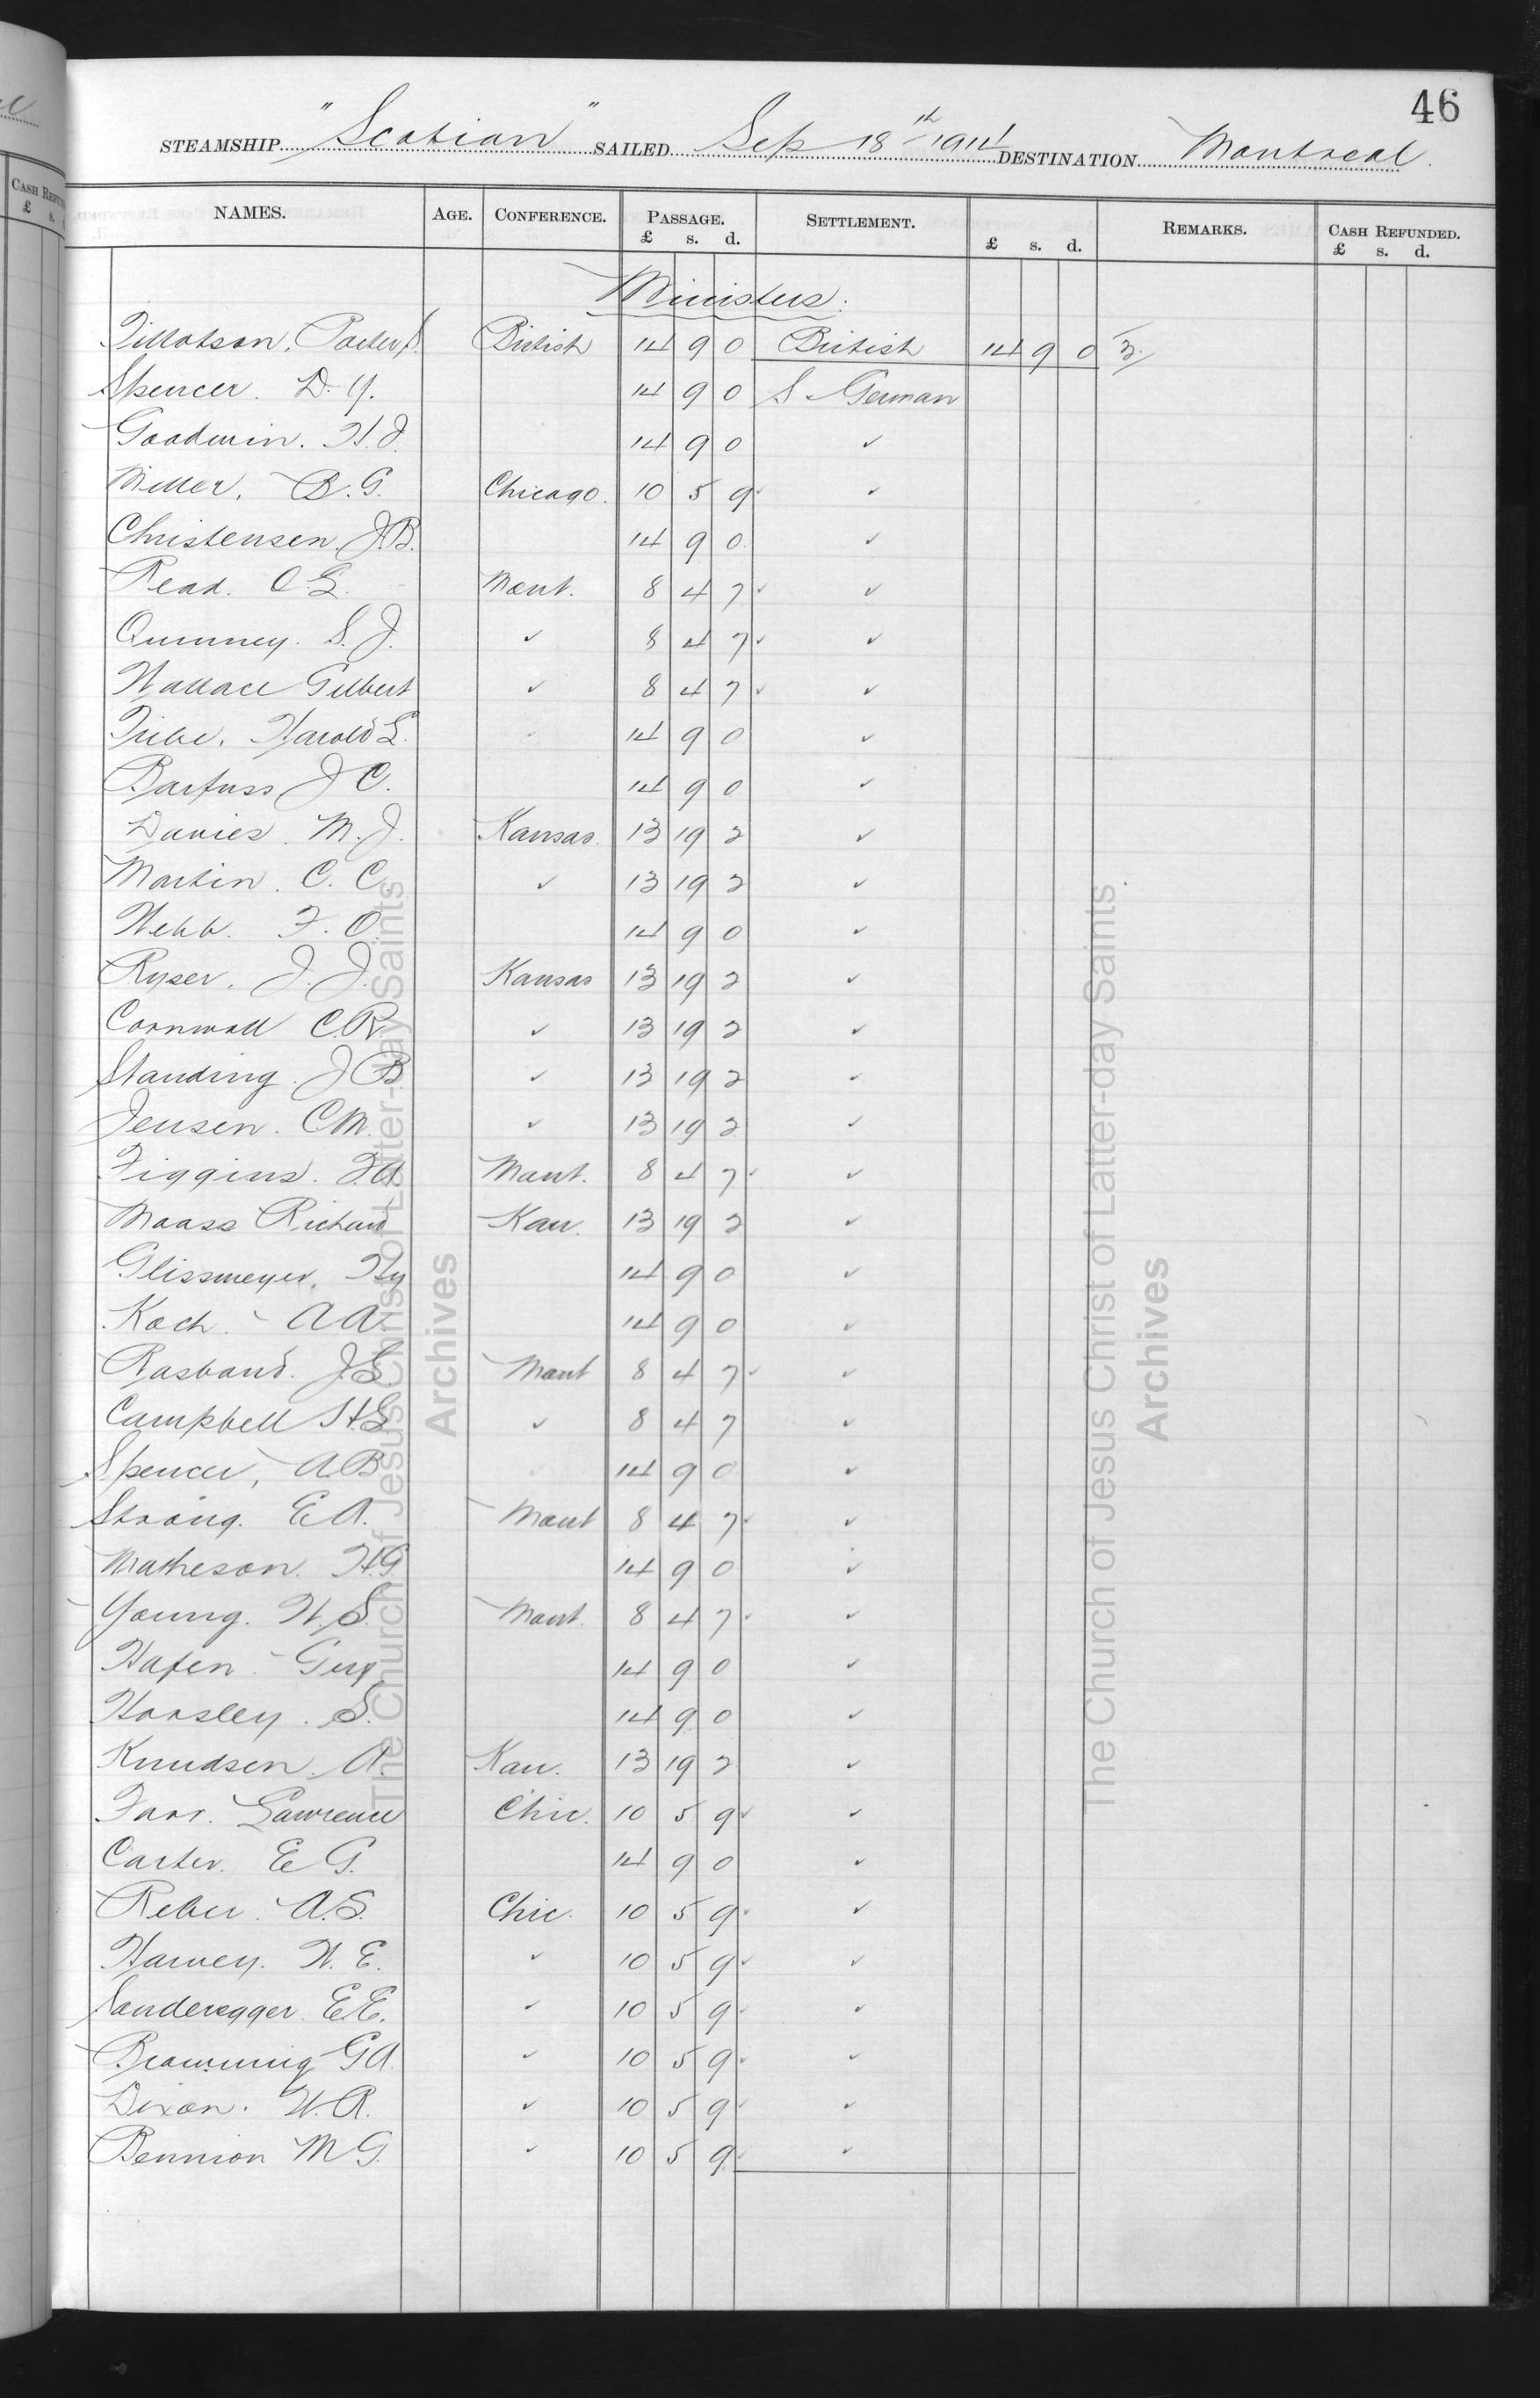 46
STEAMSHIP "Scotian" SAILED Sep 18th 1914 DESTINATION Montreal.
NAMES. AGE. CONFERENCE. PASSAGE. SETTLEMENT. REMARKS. CASH REFUNDED.
£ s. d. £ s. d. £ s. d.
Ministers.
Tillotson, British 14 9 0 British 14 9 0 3/
Spencer. D. Y. 14 9 0 S German
Goodwin. H. J. 14 9 0 ✓
Miller, B. G. Chicago. 10 5 9 ✓ ✓
Christensen, J.B. 14 9 0 ✓
Read. O. L. Mont. 8 4 7 ✓ ✓
Quinney. S. J. ✓ 8 4 7 ✓ ✓
Wallace Gilbert ✓ 8 4 7 ✓ ✓
Tribe, Harold L. 14 9 0 ✓
Barfuss J C. 14 9 0 ✓
Davies. M. J. Kansas 13 19 2 ✓
Martin. C. C. ✓ 13 19 2 ✓
Webb. F. O. 14 9 0 ✓
Ryser. J. J. Kansas 13 19 2 ✓
Cornwall C.R. ✓ 13 19 2 ✓
Standing. J B ✓ 13 19 2 ✓
Jensen. C M. ✓ 13 19 2 ✓
Figgins. Mont. 8 4 7 ✓ ✓
Maass Richard Kan. 13 19 2 ✓
Glissmeyer, Hy 14 9 0 ✓
Koch - A A 14 9 0 ✓
Rasband. J. L. Mont 8 4 7 ✓ ✓
Campbell H. L ✓ 8 4 7 ✓
Spencer, A B 14 9 0 ✓
Strong. E A. Mont 8 4 7 ✓ ✓
Matheson. H.G 14 9 0 ✓
Young. W. S. Mont. 8 4 7 ✓ ✓
Hafen - Guy 14 9 0 ✓
Horsley. S. 14 9 0 ✓
Knudsen. A. Kan. 13 19 2 ✓
Farr. Lawrence Chic. 10 5 9 ✓ ✓
Carter. E G. 14 9 0 ✓
Reber. A.S. Chic. 10 5 9 ✓ ✓
Harvey. W. E. ✓ 10 5 9 ✓ ✓
Sonderegger E.E. ✓ 10 5 9 ✓ ✓
Browning G A. ✓ 10 5 9 ✓ ✓
Dixon. W. R. ✓ 10 5 9 ✓ ✓
Bennion M G. ✓ 10 5 9 ✓ ✓
The Church of Jesus Christ of Latter-day Saints
Archives
The Church of Jesus Christ of Latter-day Saints
Archives
CASH REFUN
£ s.